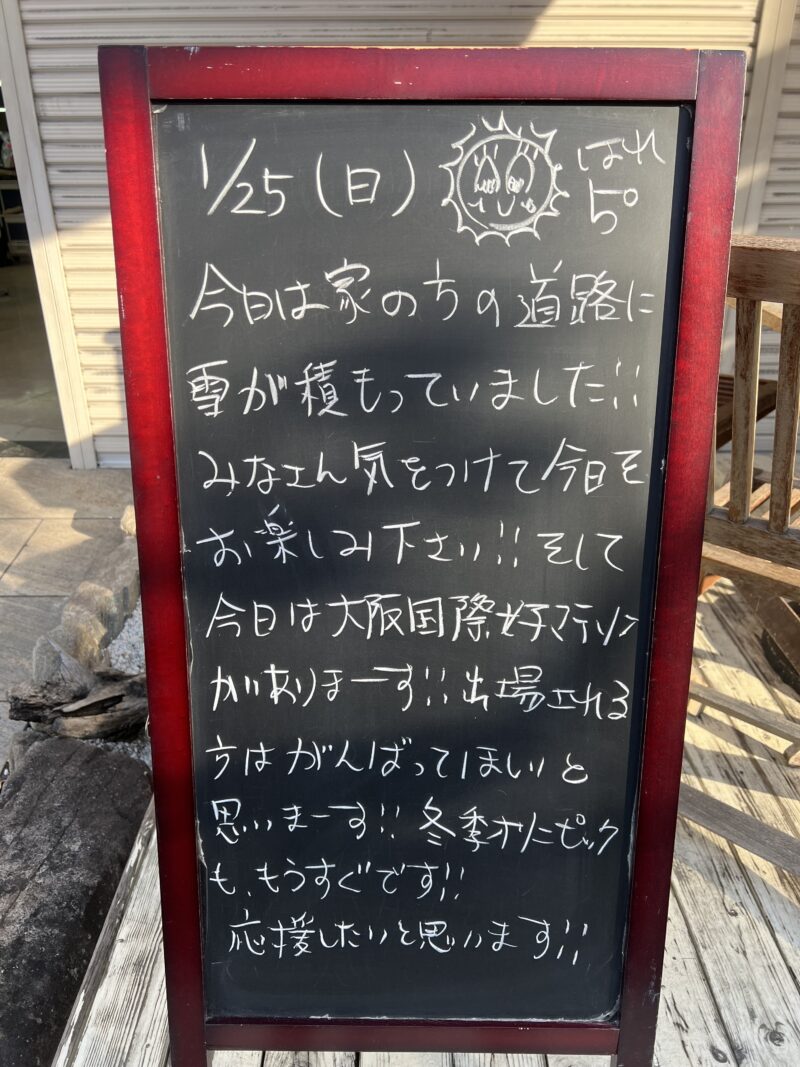 1/25(日) はれ 5°
今日は家の方の道路に
雪が積もっていました!!
みなさん気をつけて今日を
お楽しみ下さい!! そして
今日は大阪国際女子マラソン
がありまーす!! 出場される
方はがんばってほしいと
思いまーす!! 冬季オリンピック
も、もうすぐです!!
応援したいと思います!!